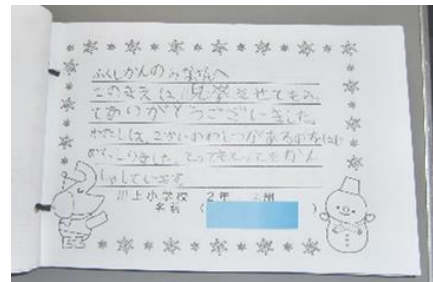 ふくしかんのみなさんへ
このまえは、見学させてもらっ
てありがとうございました。
わたしは、2かいのわしつがあるのをはじ
めてしりました。とってもとってもかん
しゃしています。
川上小学校 2年 2組
名前（